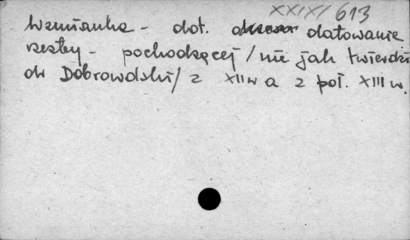 XXIX/613
Wzmianka - dot. datowanie
rzeźby - pochodzącej /nie jak twierdzi
dr Dobrowolski/ z XII w a z poł. XIII w.